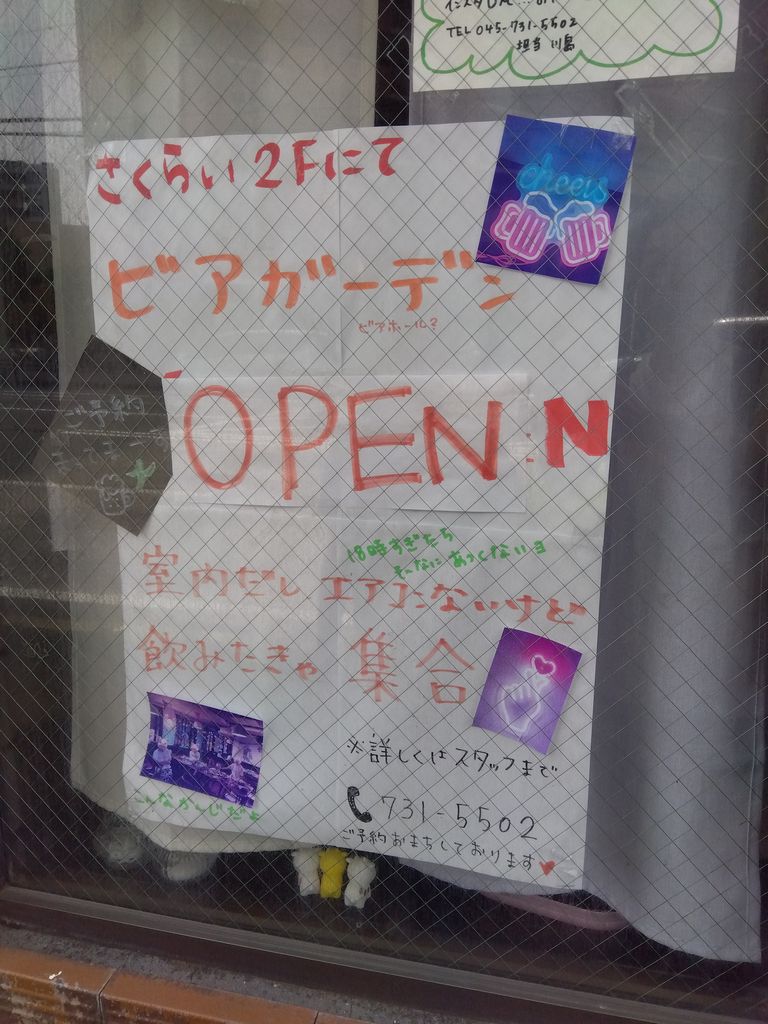 インスタDM
TEL 045-731-5502
担当 川島
さくらい 2Fにて
cheers
ビアガーデン
ビアホール?
ご予約
OPEN:N
18時すぎたら
そんなに あつくないヨ
室内だし、エアコンないけど
飲みたきゃ 集合
※詳しくはスタッフまで
こんなかんじだよ
731-5502
ご予約おまちしております